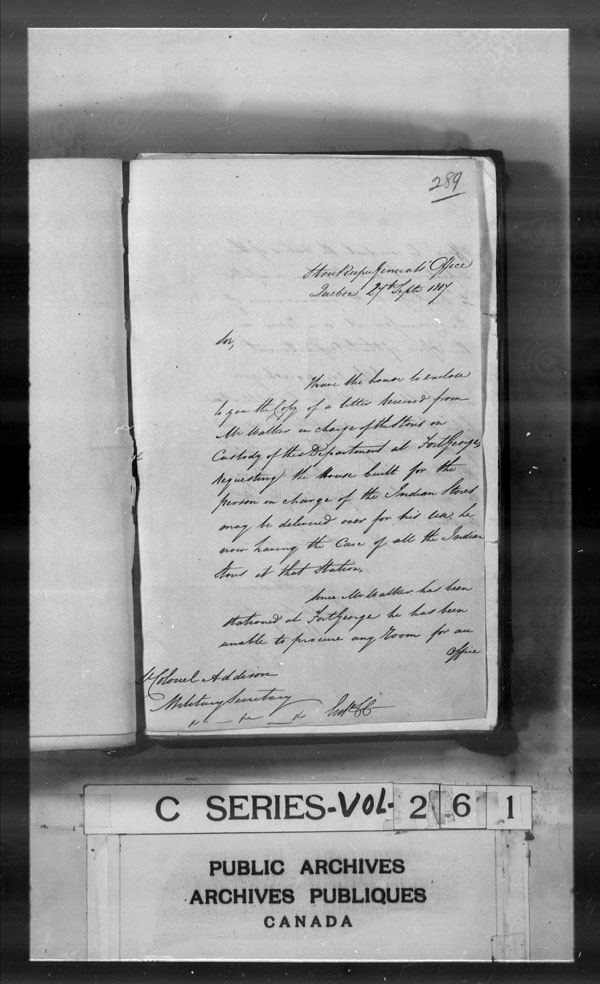 289
Storekeeper Generals Office
Quebec 27th Septr. 1817.
Sir,
I have the honor to enclose
to you the Copy of a letter received from
Mr Walker in charge of the Stores in
Custody of this Department at Fort George,
requesting the House built for the
person in charge of the Indian Stores
may be delivered over for his use, he
now having the Care of all the Indian
Stores at that Station.
Since Mr Walker has been
stationed at Fort George he has been
unable to procure any Room for an
Office
Lt Colonel Addison
Military Secretary
C SERIES-VOL-261
PUBLIC ARCHIVES
ARCHIVES PUBLIQUES
CANADA